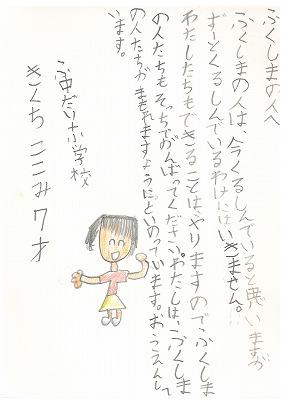 ふくしまの人へ
ふくしまの人は、今くるしんでいると思いますが
ずーとくるしんでいるわけにはいきません。
わたしたちもできることはやりますのでふくしま
の人たちもそっちでがんばってください。わたしは、ふくしま
の人たちがまもれますように。といのっています。おうえんして
います。
小学校
きくちここみ7才